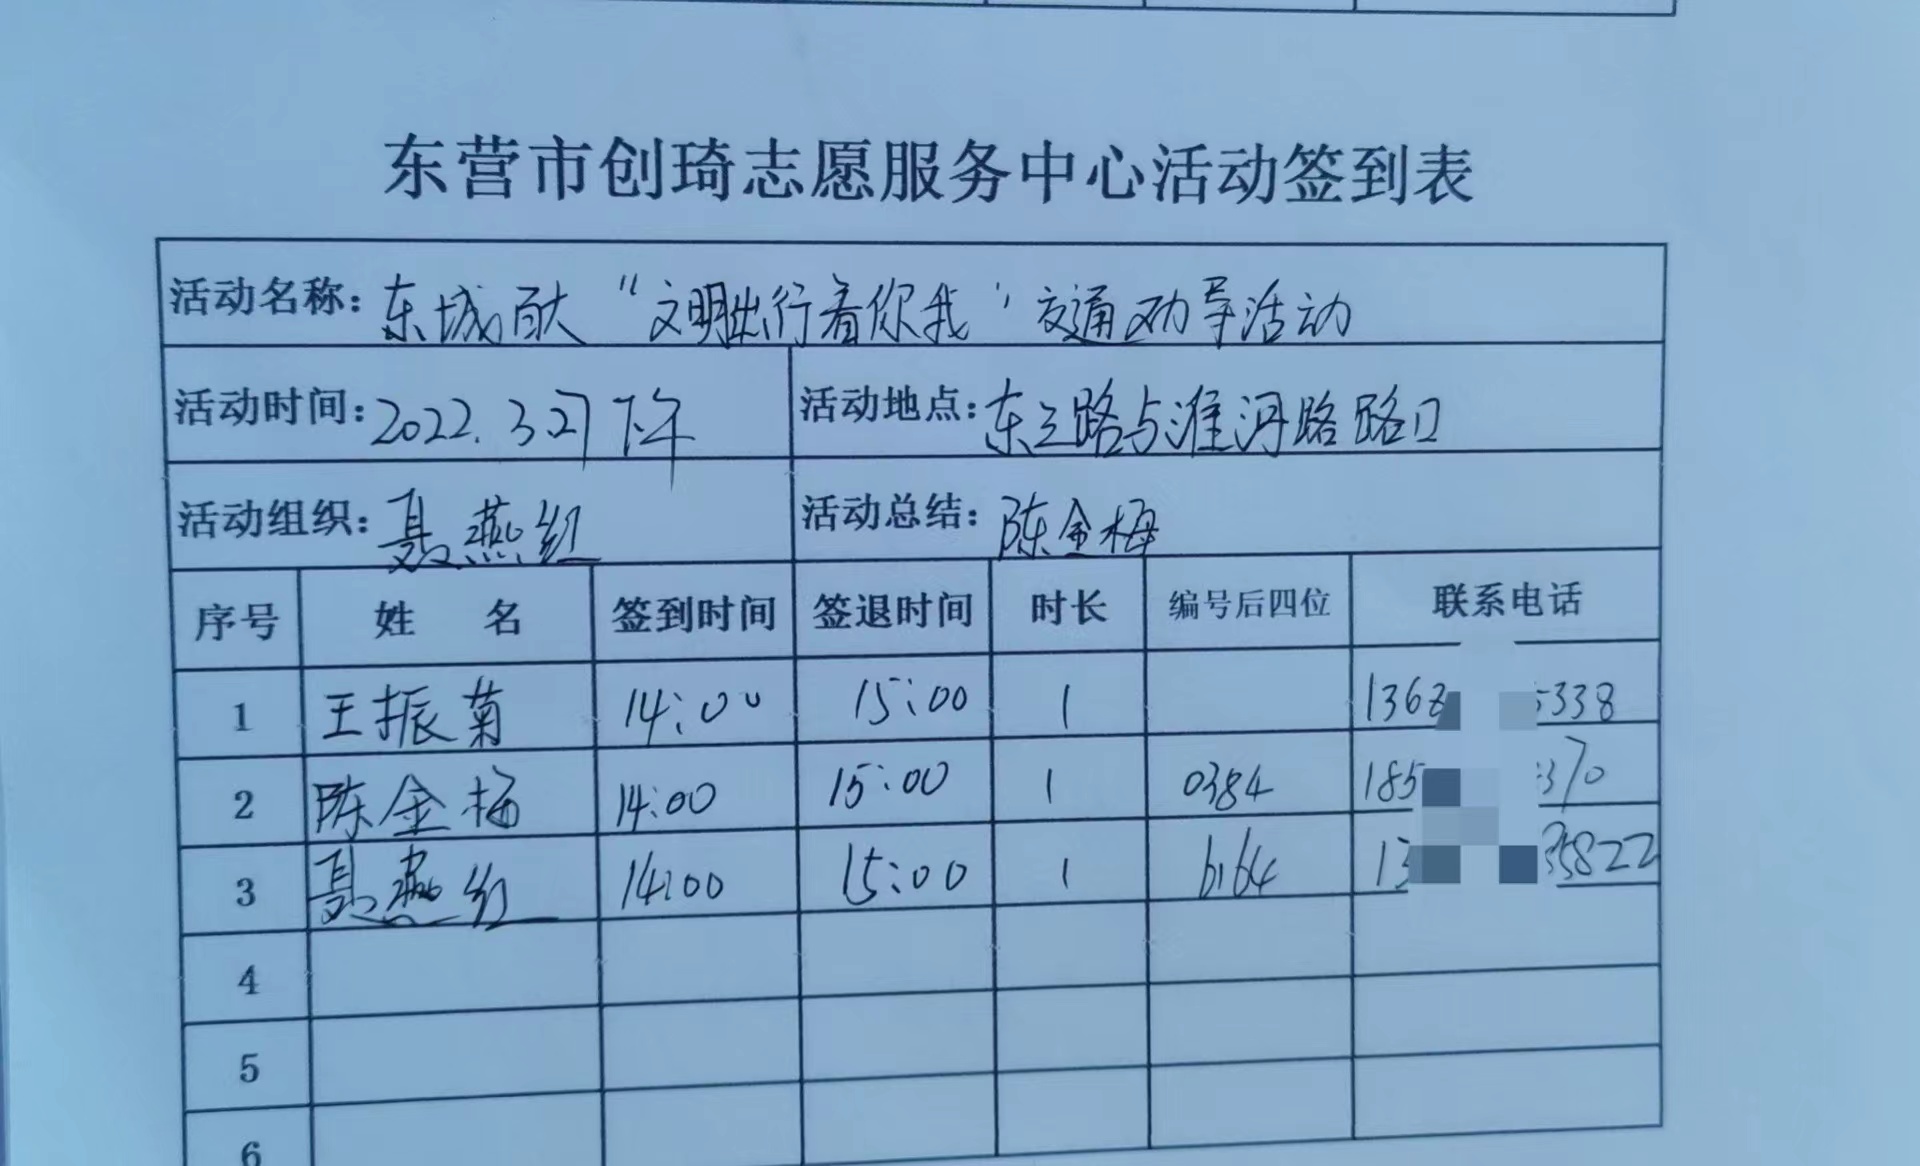 东营市创琦志愿服务中心活动签到表
活动名称: 东城百大“文明出行看你我”交通劝导活动
活动时间: 2022.3 27 下午 活动地点: 东三路与淮河路路口
活动组织: 聂燕红 活动总结: 陈金梅
序号 姓 名 签到时间 签退时间 时长 编号后四位 联系电话
1 王振菊 14:00 15:00 1 136 5338
2 陈金梅 14:00 15:00 1 0384 185 370
3 聂燕红 14:00 15:00 1 6164 13 35822
4
5
6